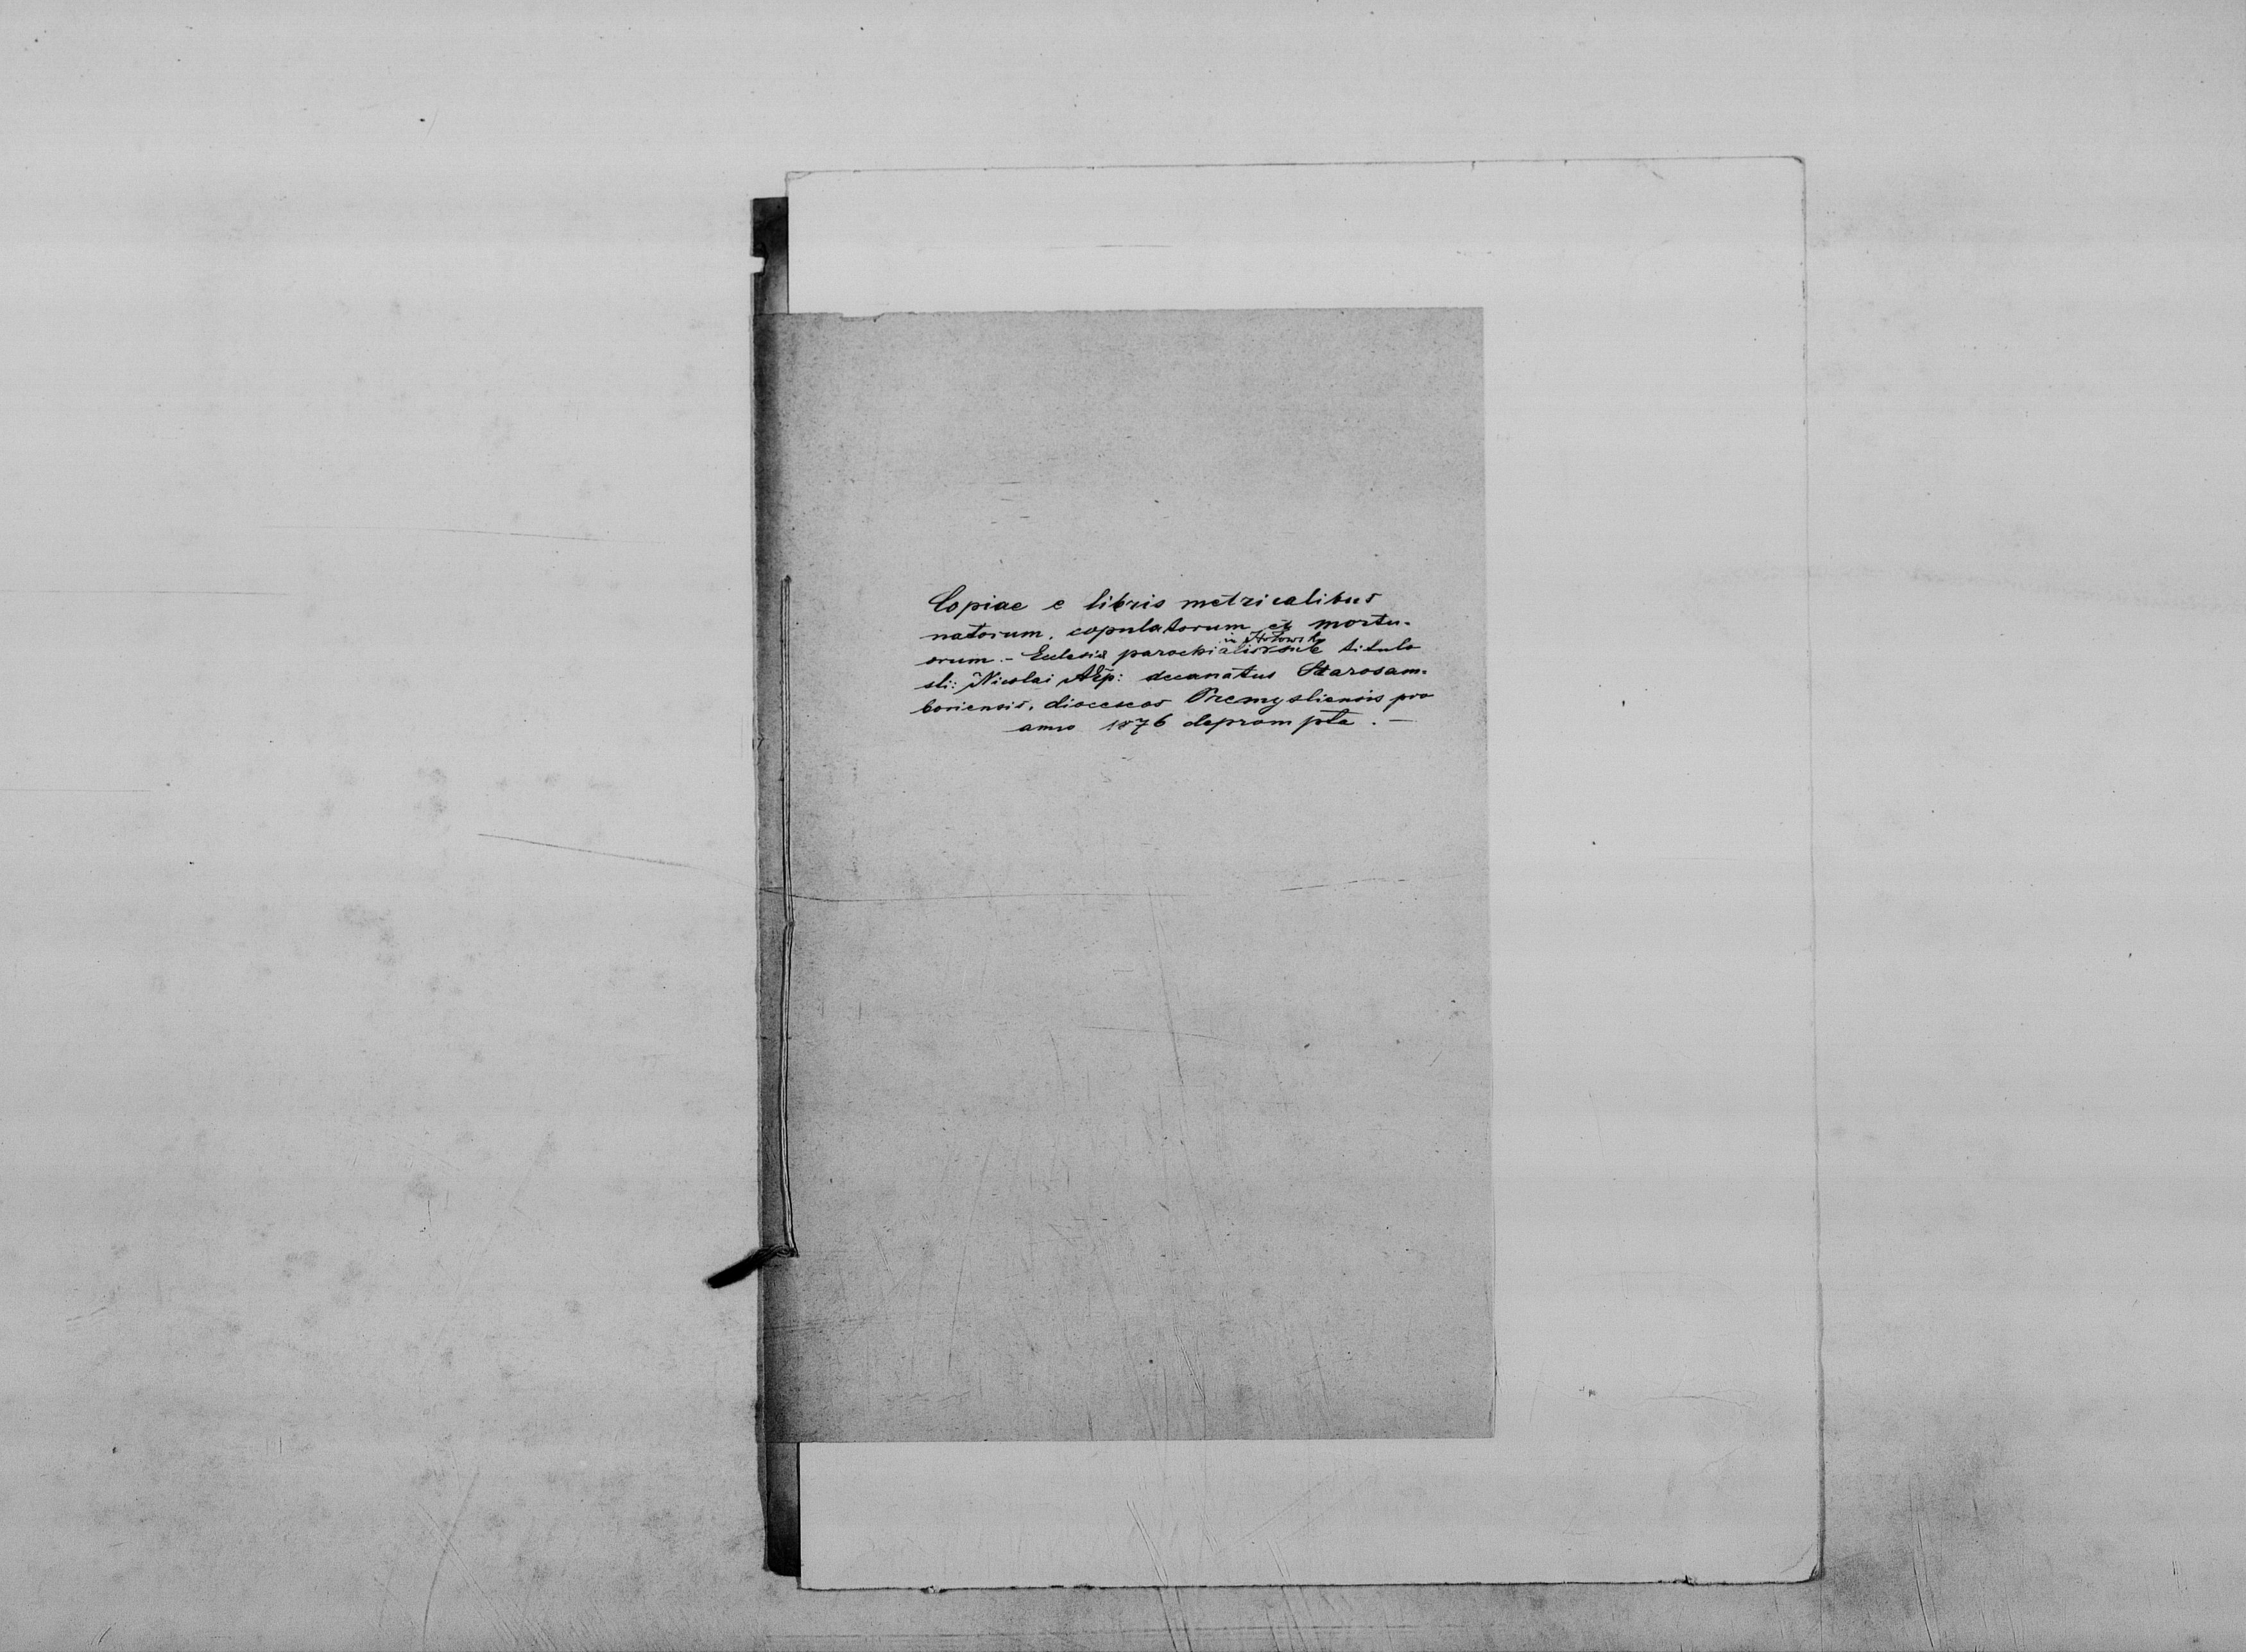 Copiae e libris metricalibus
natorum, copulatorum et mortu-
orum.- Eclesia parochialis sub titulo
in
sti: Nicolai Aep: decanatus Starosam-
boriensis, dioceseos Premysliensis pro
anno 1876 deprompta.-